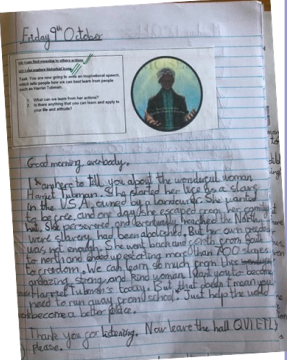 Friday 9th October
LO: I can find meaning in others actions
LO: I can explore historical issues
Task: You are now going to write an inspirational speech,
which tells people how we can best learn from people
such as Harriet Tubman.
1. What can we learn from her actions?
2. Is there anything that you can learn and apply to
your life and attitude?
Good morning everybody.
I am here to tell you about the wonderful woman
Harriet Tubman. She started her life as a slave
in the U.S.A, owned by a landowner. She wanted
to be free, and one day she escaped from
She persevered and eventually reached the North,
were slavery had been abolished. But her own freedom
was not enough. She went back and forth from south
to north and ended up escorting more than 700
to freedom. We can learn so much from this
amazing, strong, and kind woman. I want you to become
Harriet Tubman's today. But that doesn't mean you
need to run away from school. Just help the world
become a better place.
Thank you for listening. Now leave the hall QUIETLY
Please.